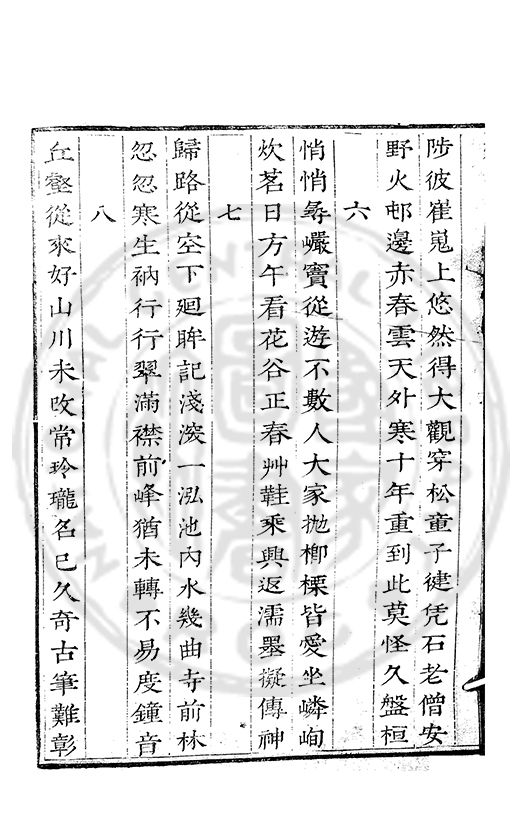 陟彼崔嵬上悠然得大觀穿松童子㨗凭石老僧安
野火邨邊赤春雲天外寒十年重到此莫怪久盤桓
六
悄悄尋巖竇從遊不數人大家拋榔栗皆愛坐嶙峋
炊茗日方午看花谷正春艸鞋乘興返濡墨擬傳神
七
歸路從空下廻眸記淺深一泓池內水幾曲寺前林
忽忽寒生衲行行翠滿襟前峰猶未轉不易度鐘音
八
丘壑從來好山川未改常玲瓏名已久奇古筆難彰